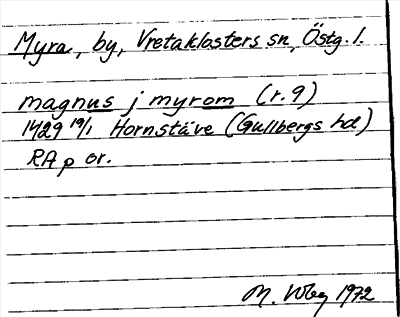 Myra, by, Vretaklosters sn, Östg. l.
magnus j myrom (r. 9)
1429 19/1 Hornstäve (Gullbergs hd)
RA p or.
M. 1972